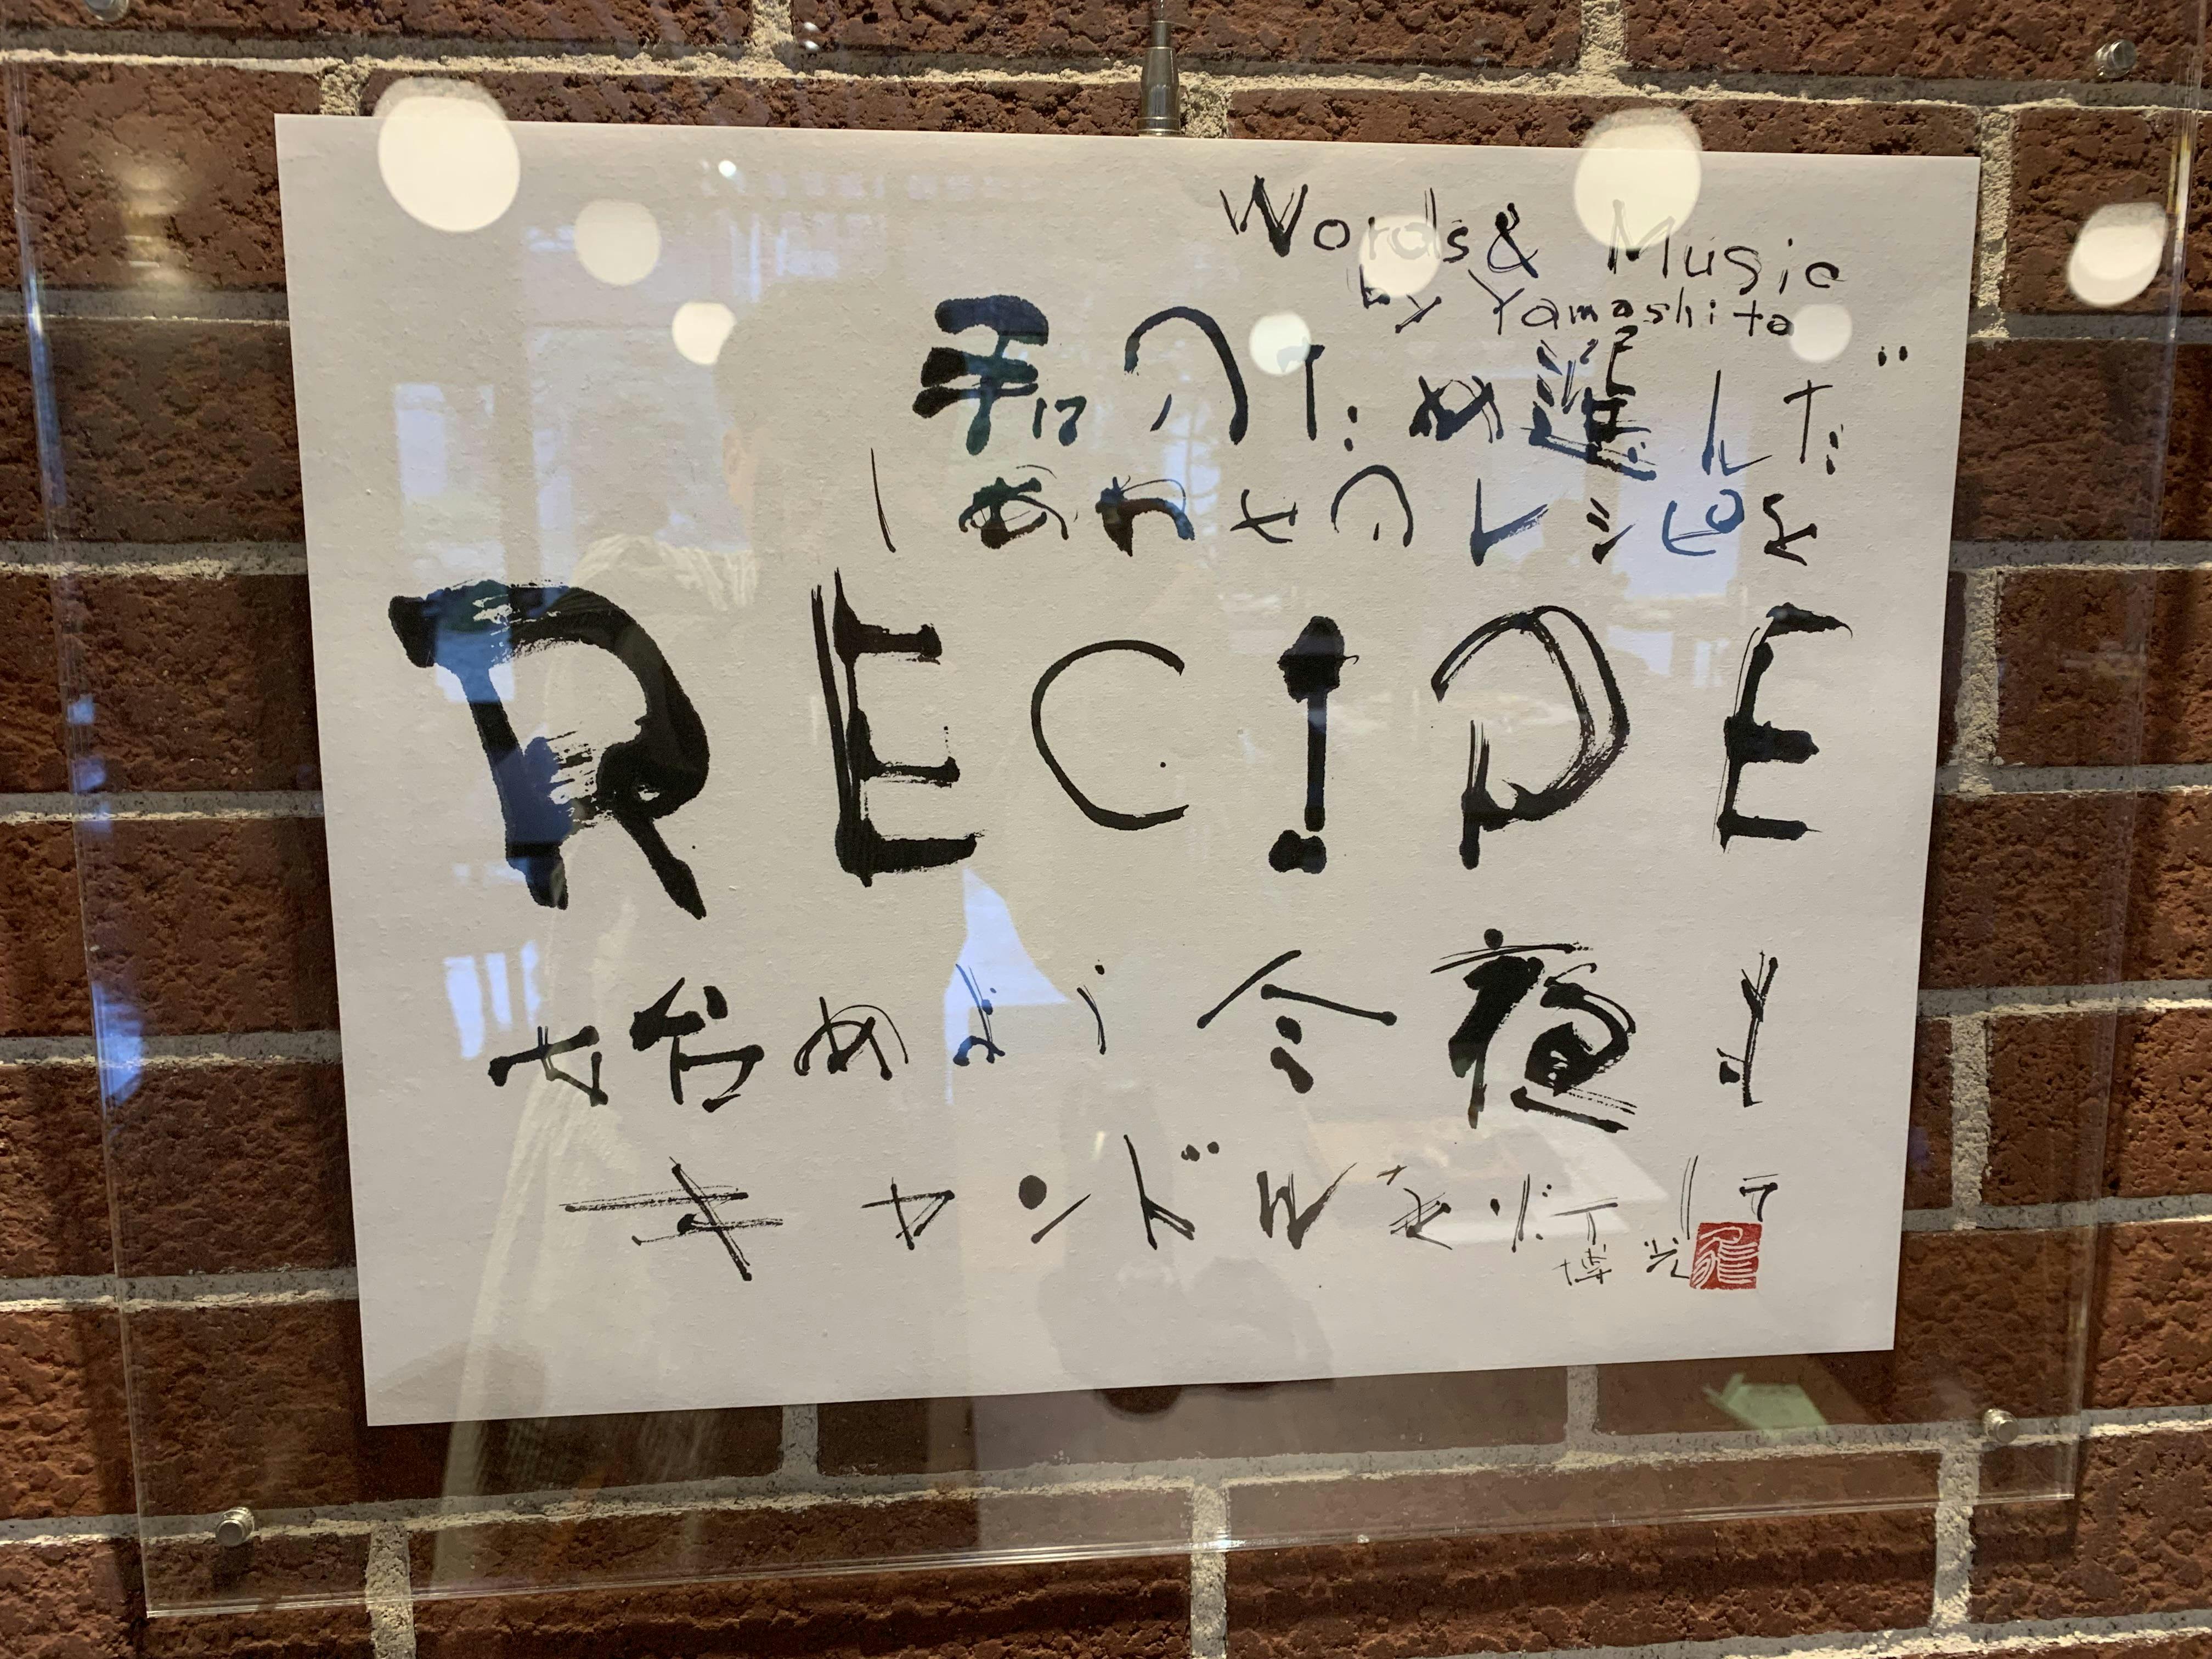 Words & Music
by Yamashita
君のため選んだ
しあわせのレシピを
RECIPE
始めよう今夜
キャンドルを灯して
博光